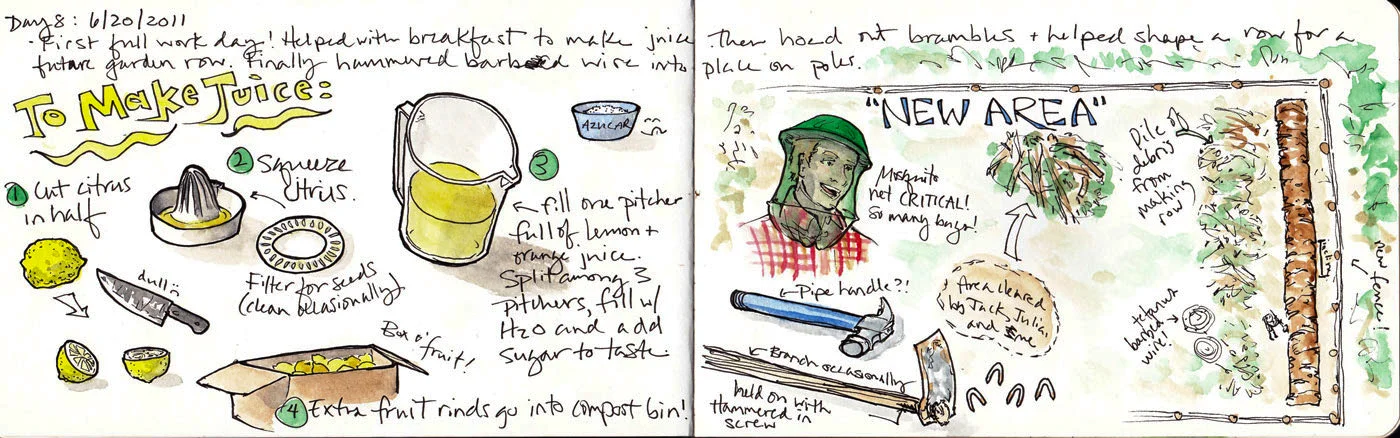 Day 8: 6/20/2011
- First full work day! Helped with breakfast to make juice. Then hoed out brambles + helped shape a row for a
future garden row. Finally hammered barbed wire into place on poles.
To Make Juice:
1 Cut citrus
in half
dull
2 Squeeze
citrus.
Filter for seeds
(clean occasionally)
AZUCAR
3
fill one pitcher
full of lemon +
orange juice.
Split among 3
pitchers, fill w/
H2O and add
sugar to taste.
Box o' fruit!
4 Extra fruit rinds go into compost bin!
"NEW AREA"
Mosquito
net CRITICAL!
So many bugs!
Pipe handle?!
Branch occasionally
held on with
Hammered in
screw
Area cleared
by Jack, Julia,
and me
Pile of
debris
from
making
row
barbed
wire!
new fence!